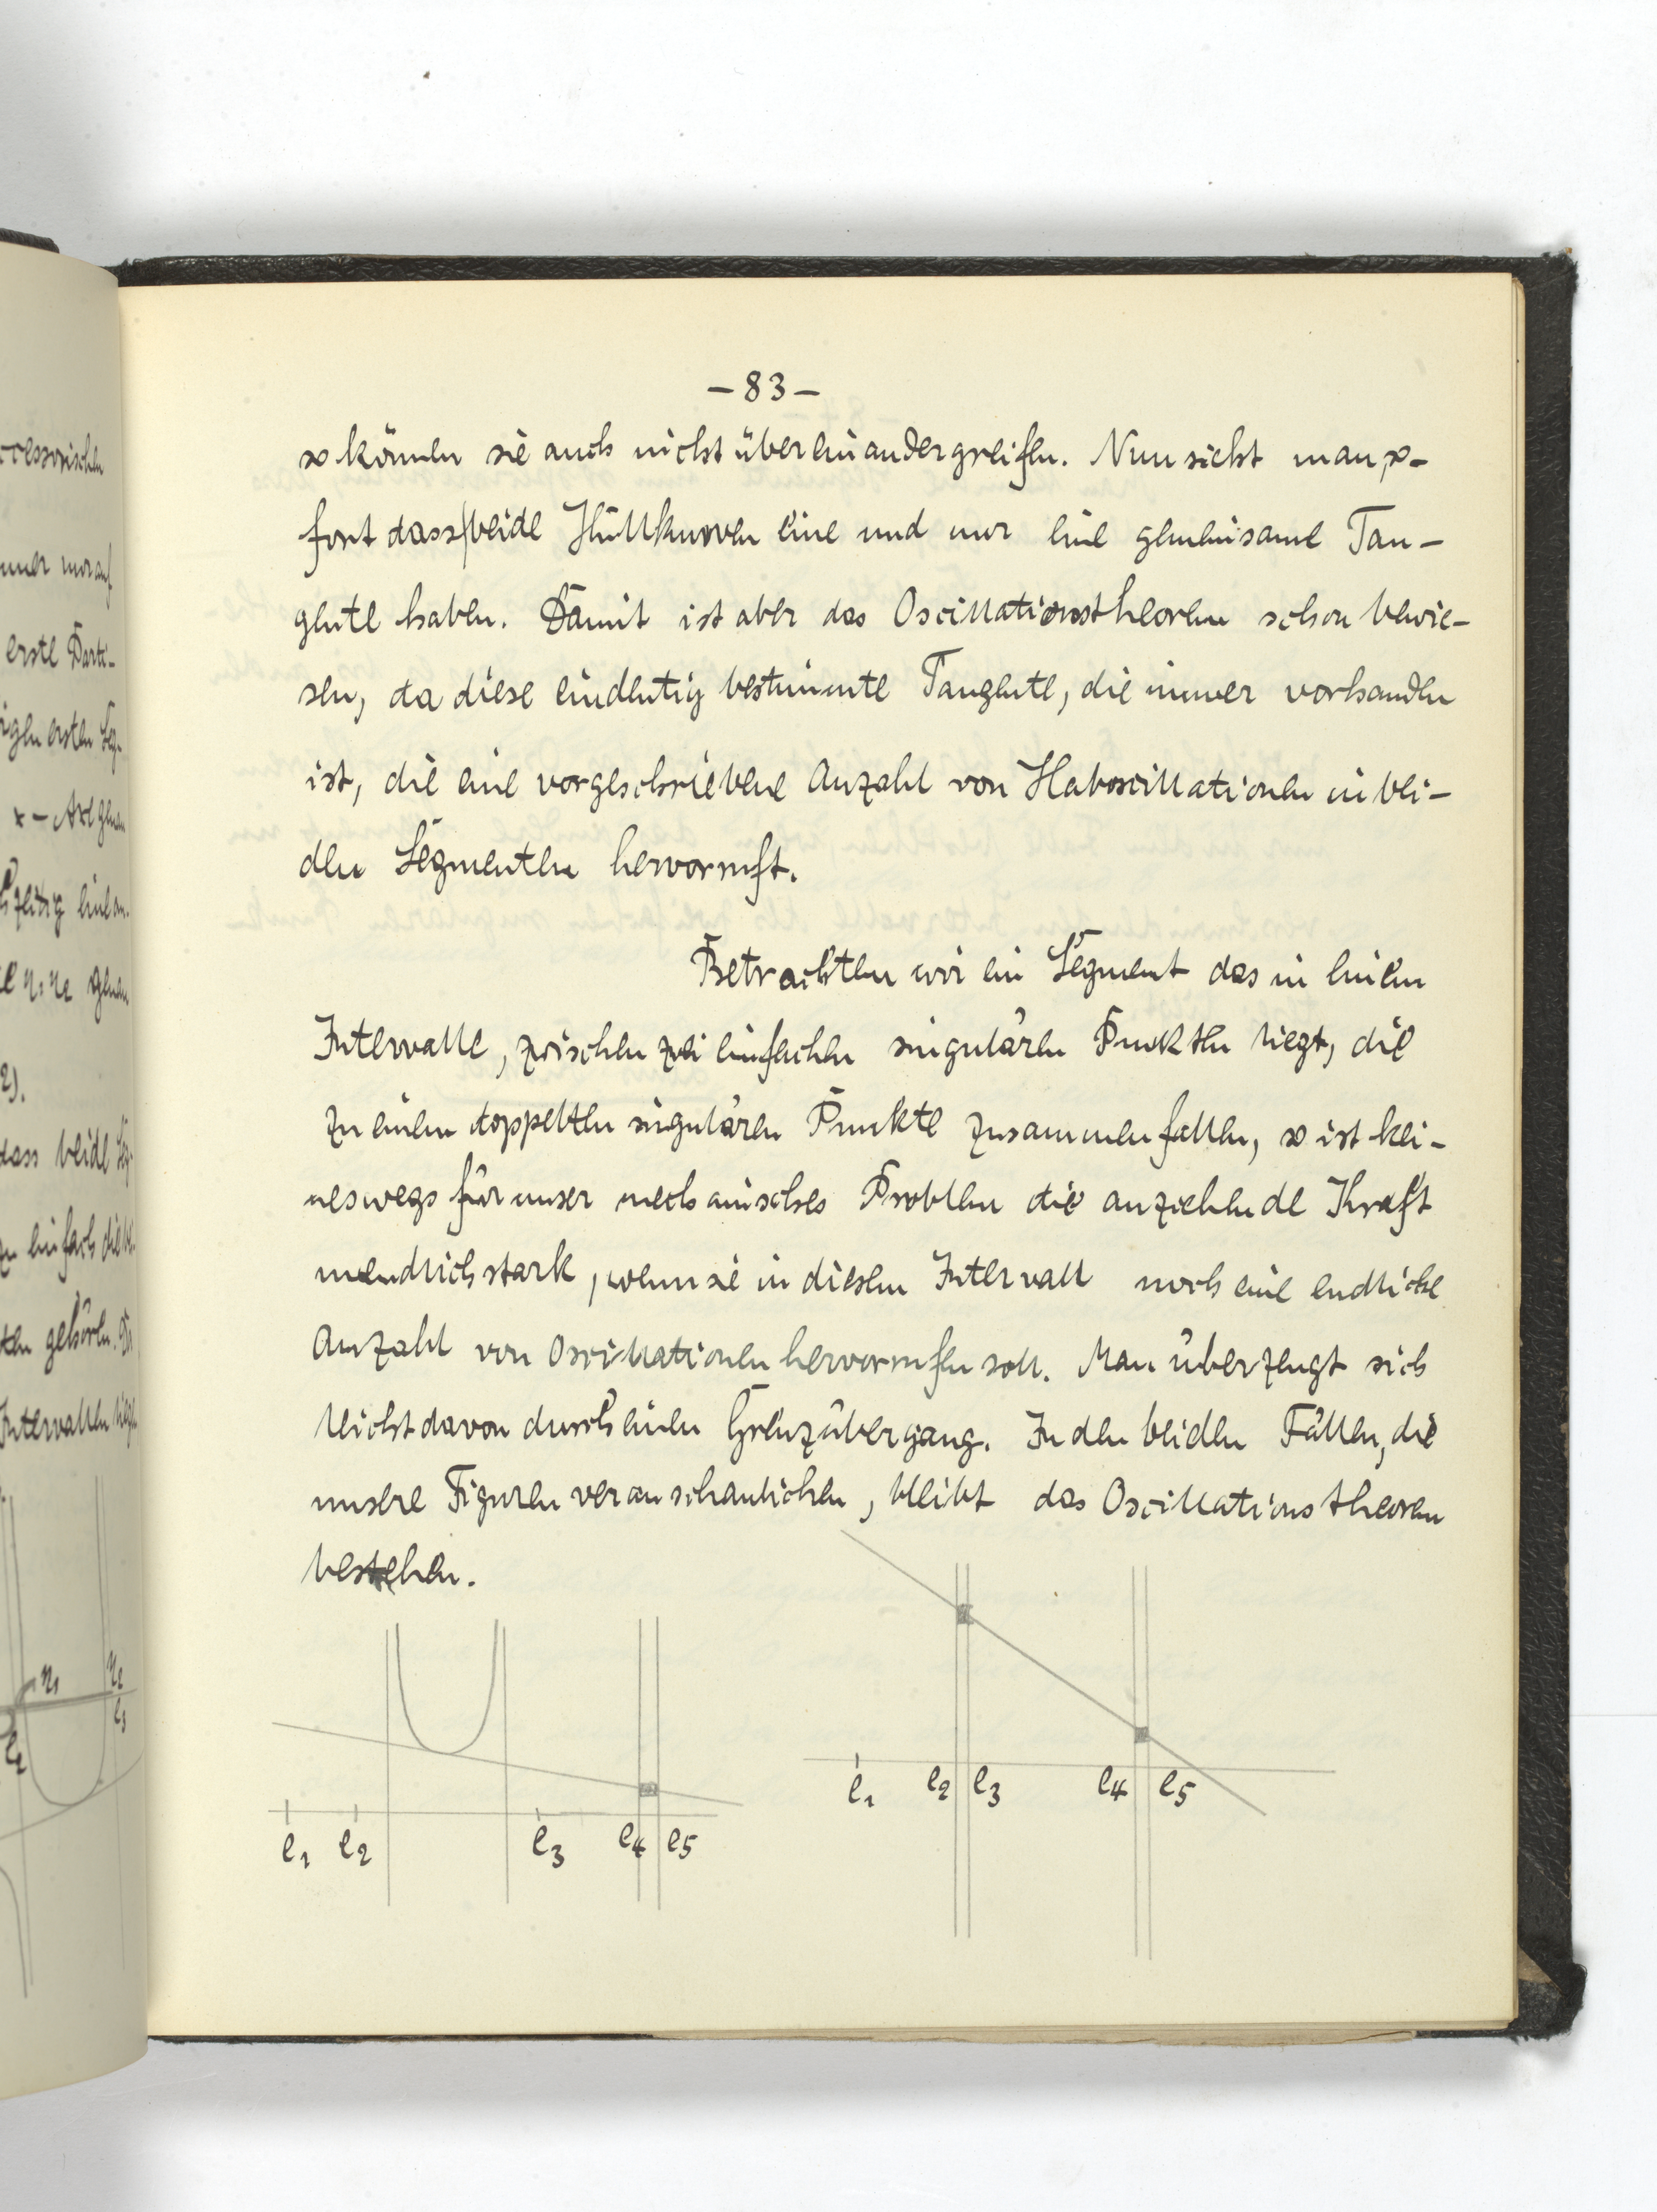 cessorischen
immer nur auf
erste Parti-
igen ersten Seg-
x-Axe genau
zeitig einan-
η₁ η₂ genau
2).
dass beide Seg-
zu einfach die
ten gehören.
Intervallen liegt
η₁ η₂
e₂ e₃
-83-
so können sie auch nicht übereinandergreifen. Nun sieht man, so-
fort dass beide Hüllkurven eine und nur eine gemeinsame Tan-
gente haben. Damit ist aber das Oscillationstheorem schon bewie-
sen, da diese eindeutig bestimmte Tangente, die immer vorhanden
ist, die eine vorgeschriebene Anzahl von Haboscillationen in bei-
den Segmenten hervorruft.
Betrachten wir ein Segment das in einem
Intervalle, zwischen zwei einfachen singulären Punkten liegt, die
zu einem doppelten singulären Punkte zusammenfallen, so ist kei-
neswegs für unser mechanisches Problem die anziehende Kraft
unendlich stark, wenn sie in diesem Intervall noch eine endliche
Anzahl von Oscillationen hervorrufen soll. Man überzeugt sich
leicht davon durch einen Grenzübergang. In den beiden Fällen, die
unsere Figuren veranschaulichen, bleibt das Oscillationstheorem
bestehen.
e₁ e₂ e₃ e₄ e₅
e₁ e₂ e₃ e₄ e₅